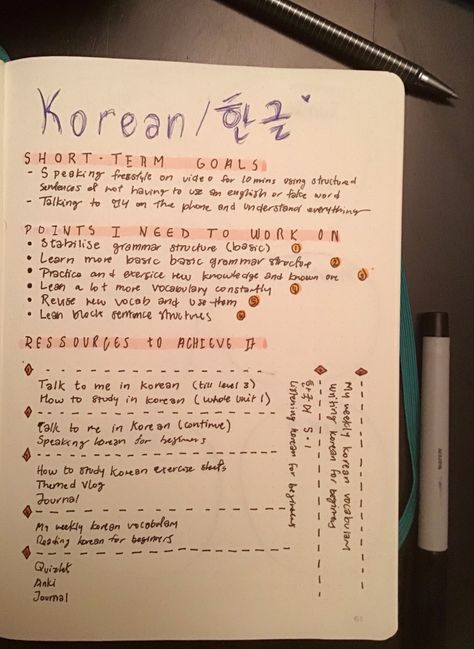 Korean / 한글
SHORT-TERM GOALS
- Speaking freestyle on video for 10 mins using structured
sentences of not having to use an english or false word
- Talking to 언니 on the phone and understand everything
POINTS I NEED TO WORK ON
• Stabilise grammar structure (basic) 1
• Learn more basic basic grammar structure 2
• Practice and exercice new knowledge and known one 3
• Lean a lot more vocabulary constantly
• Reuse new vocab and use them 5
• Lean block sentence structures 6
RESSOURCES TO ACHIEVE IT
Talk to me in Korean (till level 3)
How to study in korean (whole unit 1)
Talk to me in Korean (continue)
Speaking korean for beginners
How to study korean exercise sheets
Themed Vlog
Journal
My weekly korean vocabulary
Reading korean for beginners
Quizlet
Anki
Journal
My weekly korean vocabulary
writing korean for beginners
한국어
listening korean for beginners